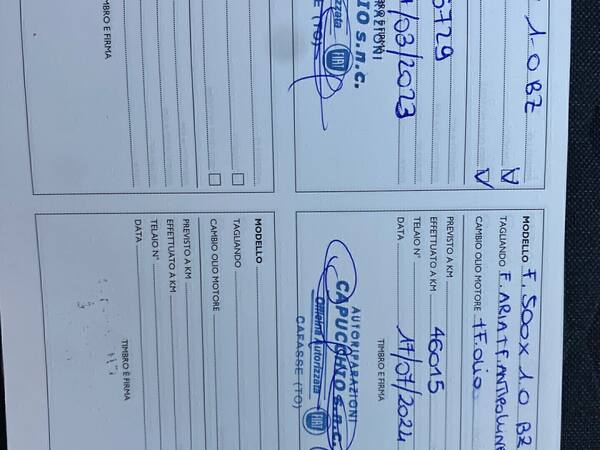 1.0 BZ
6729
/03/2023
PARAZIONI
IO s.n.c.
rizzata
FIAT
SSE (TO)
TIMBRO E FIRMA
MODELLO F. 500X 1.0 BZ
TAGLIANDO
CAMBIO OLIO MOTORE + F. olio
PREVISTO A KM
EFFETTUATO A KM 46015
TELAIO N°
DATA 17/07/2024
TIMBRO E FIRMA
AUTORIPARAZIONI
CAPUCCHIO s.n.c.
Officina Autorizzata
FIAT
CAFASSE (TO)
MODELLO
TAGLIANDO
CAMBIO OLIO MOTORE
PREVISTO A KM
EFFETTUATO A KM
TELAIO N°
DATA
TIMBRO E FIRMA